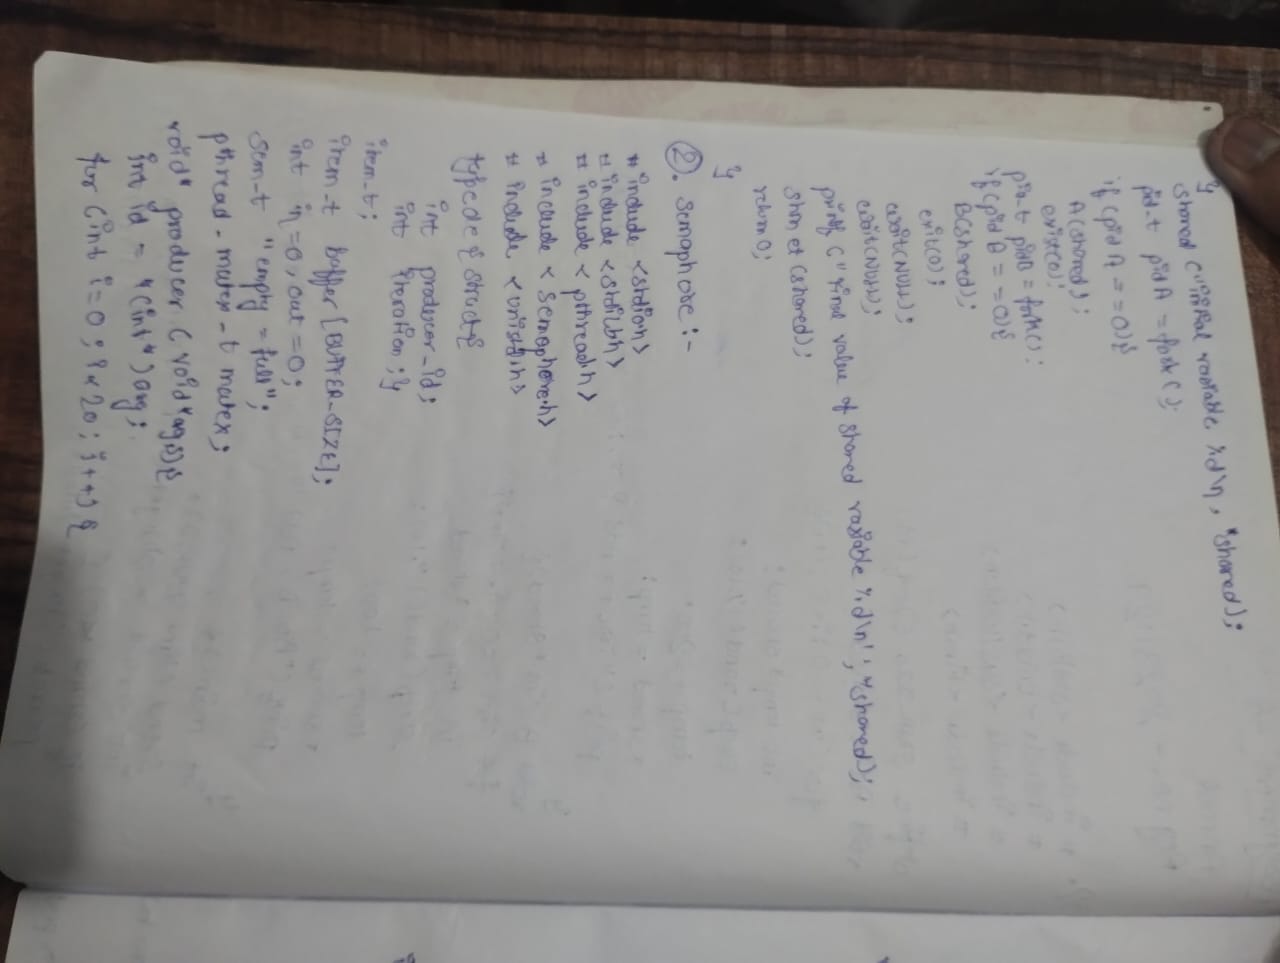 }
shared ("initial variable %d\n, *shared);
pid_t pidA = fork();
if (pidA == 0){
A(shared);
exist(0);
pid_t pidB = fork();
if (pidB == 0){
B(shared);
exit(0);
wait(NULL);
wait(NULL);
printf ("final value of shared variable %d\n', *shared);
shm et (shared);
return 0;
}
②. Semaphore:-
# include <stdio.h>
# include <stdlib.h>
# include < pthread.h>
# include < semaphore.h>
# include < unistd.h>
typedef struct{
int producer-id;
int iteration; }
item-t;
item-t buffer [BUFFER-SIZE];
int in=0, out=0;
sem-t "empty = full";
pthread-mutex-t mutex;
void* producer (void* args){
int id = *(int*) arg;
for (int i=0; i<20; i++) {